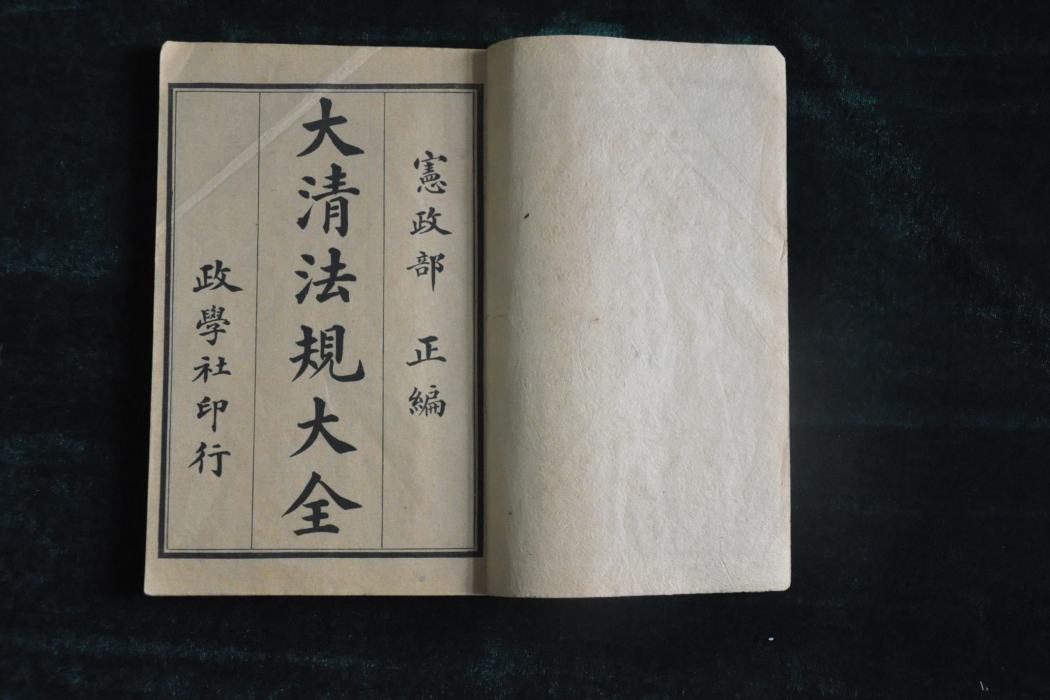 憲政部 正編
大清法規大全
政學社印行